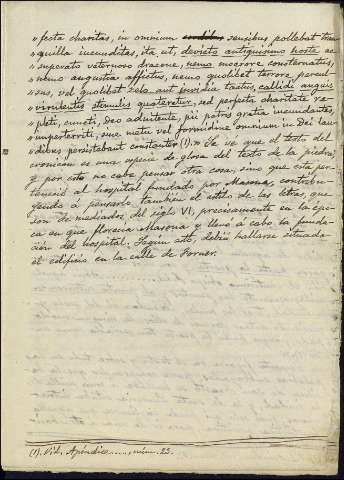 » fecta charitas, in omnium sensibus pollebat tran
» quilla iucunditas, ita ut, devicto antiquissimo hoste ac
» superato veternoso dracone, nemo mœrore consternatus,
» nemo angustia affectus, nemo quolibet terrore percul-
» sus, vel quolibet zelo aut invidia tactus, callidi anguis
» virulentis stimulis quateretur, sed perfecta charitate re-
» pleti, cuncti, Deo adiutente, pii patris gratia iucundantes,
» imperterriti, sine metu vel formidine omnium in Dei lau-
» dibus persistebant constanter (1).» Se ve que el texto del
cronicon es una especie de glosa del texto de la piedra,
y por esto no cabe pensar otra cosa, sino que esta per-
teneció al hospital fundado por Masona, contribu-
yendo á pensarlo también el estilo de las letras, que
son de mediados del siglo VI, precisamente en la épo-
ca en que florecia Masona y llevó á cabo la funda-
ción del hospital. Según esto, debió hallarse situado
el edificio en la calle de Forner.
(1). Vid. Apéndice......, núm. 23.